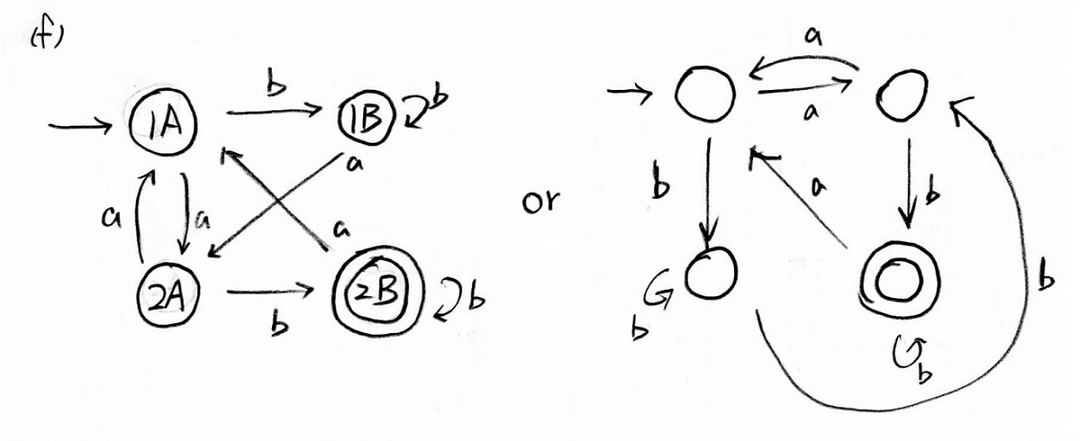 (f)
1A b 1B b
a a a a
2A b 2B b
or
a
a
b a b
b b
b